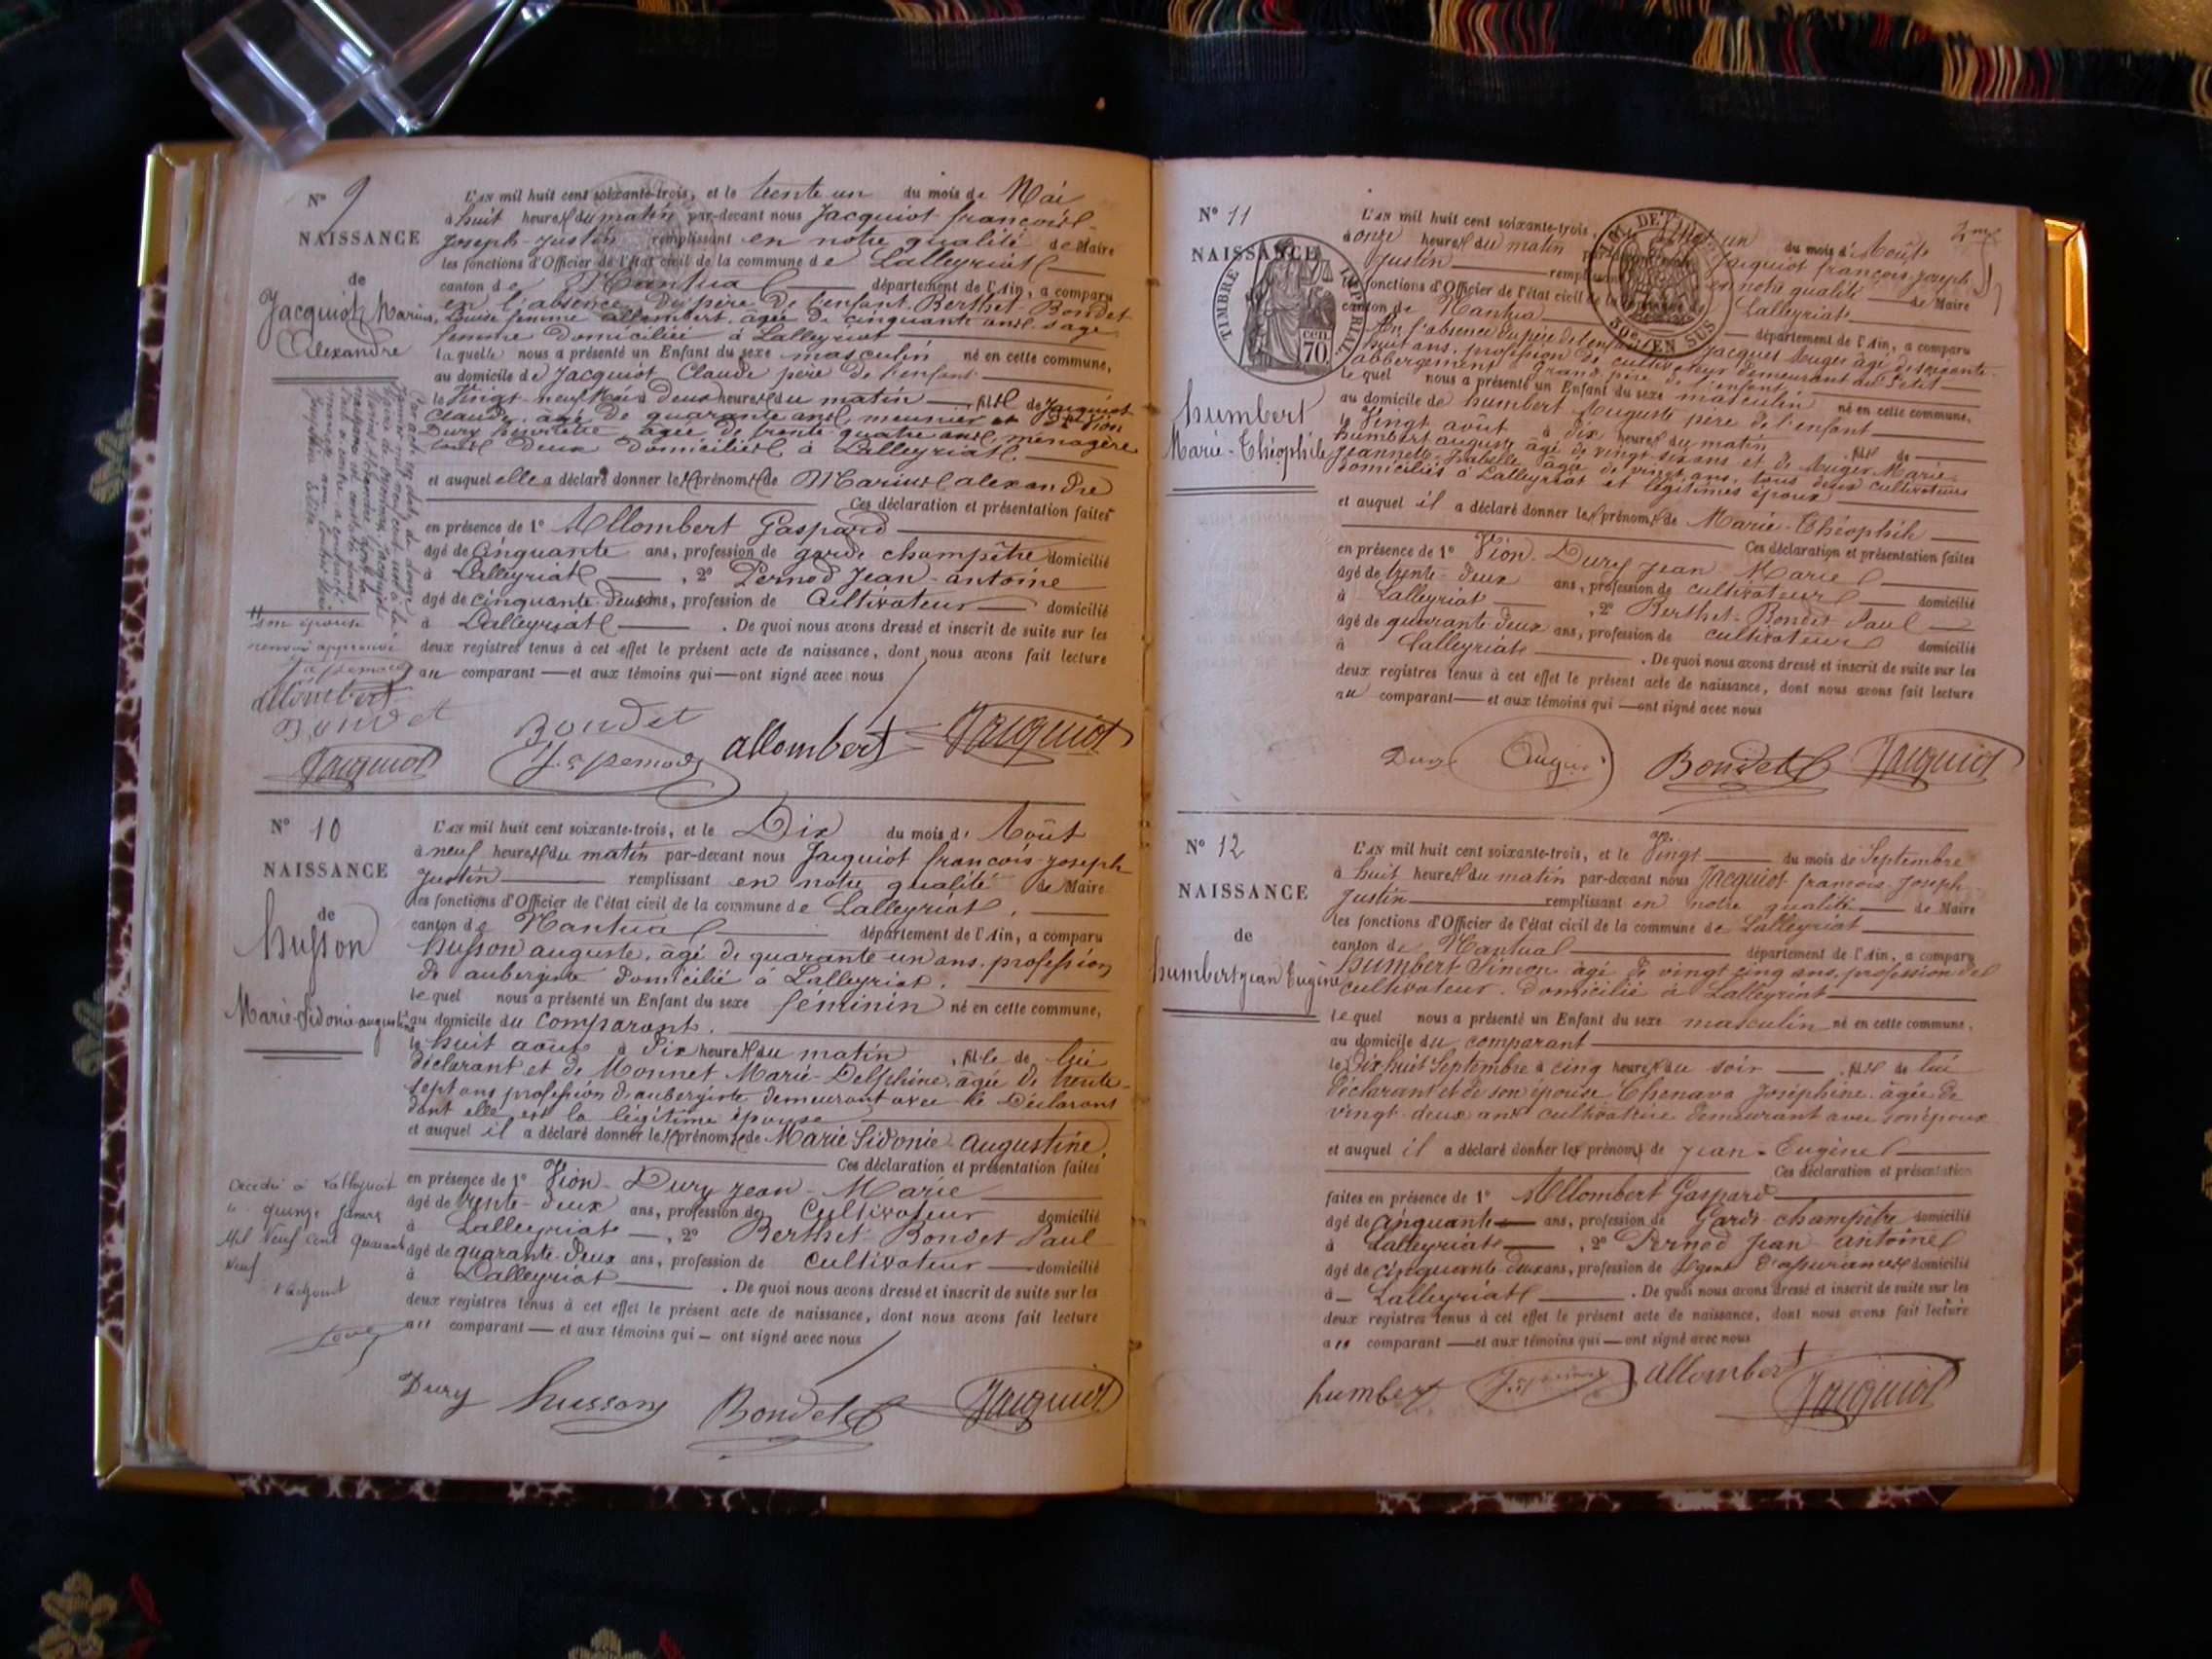 N° 9
NAISSANCE
de
Jacquiot Marius,
Alexandre
L'AN mil huit cent soixante-trois, et le trente un du mois de Mai
à huit heures du matin par-devant nous Jacquiot françois
Joseph-Justin remplissant en notre qualité de Maire
les fonctions d'Officier de l'état civil de la commune de Lalleyriat
canton de Nantua département de l'Ain, a comparu
en l'absence du père de l'enfant Berthet-Bondet
Louise femme allombert, âgée de cinquante ans sage
femme domiciliée à Lalleyriat
laquelle nous a présenté un Enfant du sexe masculin né en cette commune,
au domicile de Jacquiot Claude père de l'enfant
le vingt neuf Mai à deux heures du matin fils de Jacquiot
Claude, âgé de quarante ans, meunier et de Vion
Dury henriette âgée de trente quatre ans ménagère
tous deux domiciliés à Lalleyriat.
et auquel elle a déclaré donner les prénoms de Marius alexandre
Ces déclaration et présentation faites
en présence de 1° Allombert Gaspard
âgé de Cinquante ans, profession de garde champêtre domicilié
à Lalleyriat, 2° Pernod Jean-antoine
âgé de cinquante-deux ans, profession de Cultivateur domicilié
à Lalleyriat. De quoi nous avons dressé et inscrit de suite sur les
deux registres tenus à cet effet le présent acte de naissance, dont nous avons fait lecture
au comparant et aux témoins qui ont signé avec nous
son épouse
renvoi approuvé
allombert
Bondet
Jacquiot
Bondet
J. a pernod allombert Jacquiot
N° 10
NAISSANCE
de
husson
Marie-Sidonie-augustine
L'AN mil huit cent soixante-trois, et le Dix du mois d' Août
à neuf heures du matin par-devant nous Jacquiot françois-joseph
Justin remplissant en notre qualité de Maire
les fonctions d'Officier de l'état civil de la commune de Lalleyriat,
canton de Nantua département de l'Ain, a comparu
husson auguste, âgé de quarante-un ans, profession
de aubergiste domicilié à Lalleyriat.
lequel nous a présenté un Enfant du sexe féminin né en cette commune,
au domicile du comparant.
le huit août à dix heures du matin, fille de lui
déclarant et de Monnet Marie-Delphine, âgée de trente-
sept ans profession d'aubergiste demeurant avec le Déclarant
dont elle est la légitime épouse
et auquel il a déclaré donner les prénoms de Marie Sidonie-augustine.
Ces déclaration et présentation faites
en présence de 1° Vion-Dury jean-Marie
âgé de trente-deux ans, profession de Cultivateur domicilié
à Lalleyriat, 2° Berthet-Bondet Paul
âgé de quarante-deux ans, profession de Cultivateur domicilié
à Lalleyriat. De quoi nous avons dressé et inscrit de suite sur les
deux registres tenus à cet effet le présent acte de naissance, dont nous avons fait lecture
au comparant et aux témoins qui ont signé avec nous
Décédée à Lalleyriat
quinze
Mil Neuf Cent Quarante
Neuf
l'adjoint
Dury husson Bondet Jacquiot
N° 11
NAISSANCE
TIMBRE IMPERIAL
70 CEN
50e EN SUS
humbert
Marie-Théophile
L'AN mil huit cent soixante-trois, un du mois d'Août
à onze heures du matin Jacquiot françois joseph
Justin remplissant en notre qualité de Maire
les fonctions d'Officier de l'état civil de la Lalleyriat
canton de Nantua département de l'Ain, a comparu
En l'absence du père de l'enfant Jacquet Auger âgé de soixante-
huit ans, profession de cultivateur demeurant au Petit
abbergement grand père de l'enfant
lequel nous a présenté un Enfant du sexe masculin né en cette commune,
au domicile de humbert Auguste père de l'enfant
le Vingt août à dix heures du matin fils de
humbert auguste âgé de vingt-six ans et de Auger Marie
Jeannette-Isabelle âgée de vingt ans, tous deux cultivateurs
domiciliés à Lalleyriat et légitimes époux
et auquel il a déclaré donner les prénoms de Marie-Théophile
Ces déclaration et présentation faites
en présence de 1° Vion-Dury jean-Marie
âgé de trente-deux ans, profession de cultivateur domicilié
à Lalleyriat, 2° Berthet-Bondet Paul
âgé de quarante-deux ans, profession de cultivateur domicilié
à Lalleyriat. De quoi nous avons dressé et inscrit de suite sur les
deux registres tenus à cet effet le présent acte de naissance, dont nous avons fait lecture
au comparant et aux témoins qui ont signé avec nous
Dury Bondet Jacquiot
N° 12
NAISSANCE
de
humbert jean Eugène
L'AN mil huit cent soixante-trois, et le Vingt du mois de Septembre
à huit heures du matin par-devant nous Jacquiot françois-Joseph
Justin remplissant en notre qualité de Maire
les fonctions d'Officier de l'état civil de la commune de Lalleyriat
canton de Nantua département de l'Ain, a comparu
humbert Simon âgé de vingt cinq ans, profession de
cultivateur, domicilié à Lalleyriat
lequel nous a présenté un Enfant du sexe masculin né en cette commune,
au domicile du comparant
le Dix huit Septembre à cinq heures du soir, fils de lui
déclarant et de son épouse Chenava Joséphine, âgée de
vingt-deux ans cultivatrice demeurant avec son époux
et auquel il a déclaré donner les prénoms de jean-Eugène
Ces déclaration et présentation
faites en présence de 1° Allombert Gaspard
âgé de cinquante ans, profession de Garde-champêtre domicilié
à Lalleyriat, 2° Pernod Jean antoine
âgé de cinquante-deux ans, profession de agent d'assurances domicilié
à Lalleyriat. De quoi nous avons dressé et inscrit de suite sur les
deux registres tenus à cet effet le présent acte de naissance, dont nous avons fait lecture
au comparant et aux témoins qui ont signé avec nous
humbert allombert Jacquiot